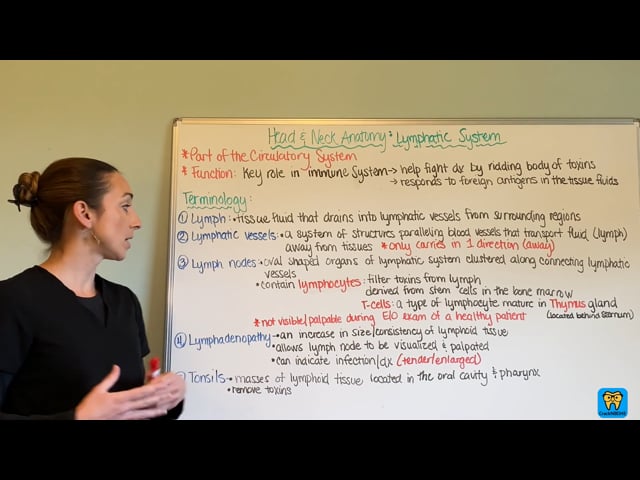 Head & Neck Anatomy: Lymphatic System
*Part of the Circulatory System
* Function: Key role in immune System → help fight dx by ridding body of toxins
→ responds to foreign antigens in the tissue fluids
Terminology:
① Lymph: • tissue fluid that drains into lymphatic vessels from surrounding regions
② Lymphatic vessels: • a system of structures paralleling blood vessels that transport fluid (lymph)
away from tissues *only carries in 1 direction (away)
③ Lymph nodes → oval shaped organs of lymphatic system clustered along connecting lymphatic
vessels
• contain lymphocytes: filter toxins from lymph
derived from stem cells in the bone marrow
T-cells: a type of lymphocyte mature in Thymus gland
(located behind sternum)
*not visible/palpable during E/O exam of a healthy patient
④ Lymphadenopathy → an increase in size/consistency of lymphoid tissue
• allows lymph node to be visualized & palpated
• can indicate infection/dx (tender/enlarged)
Tonsils → masses of lymphoid tissue located in the oral cavity & pharynx
• remove toxins